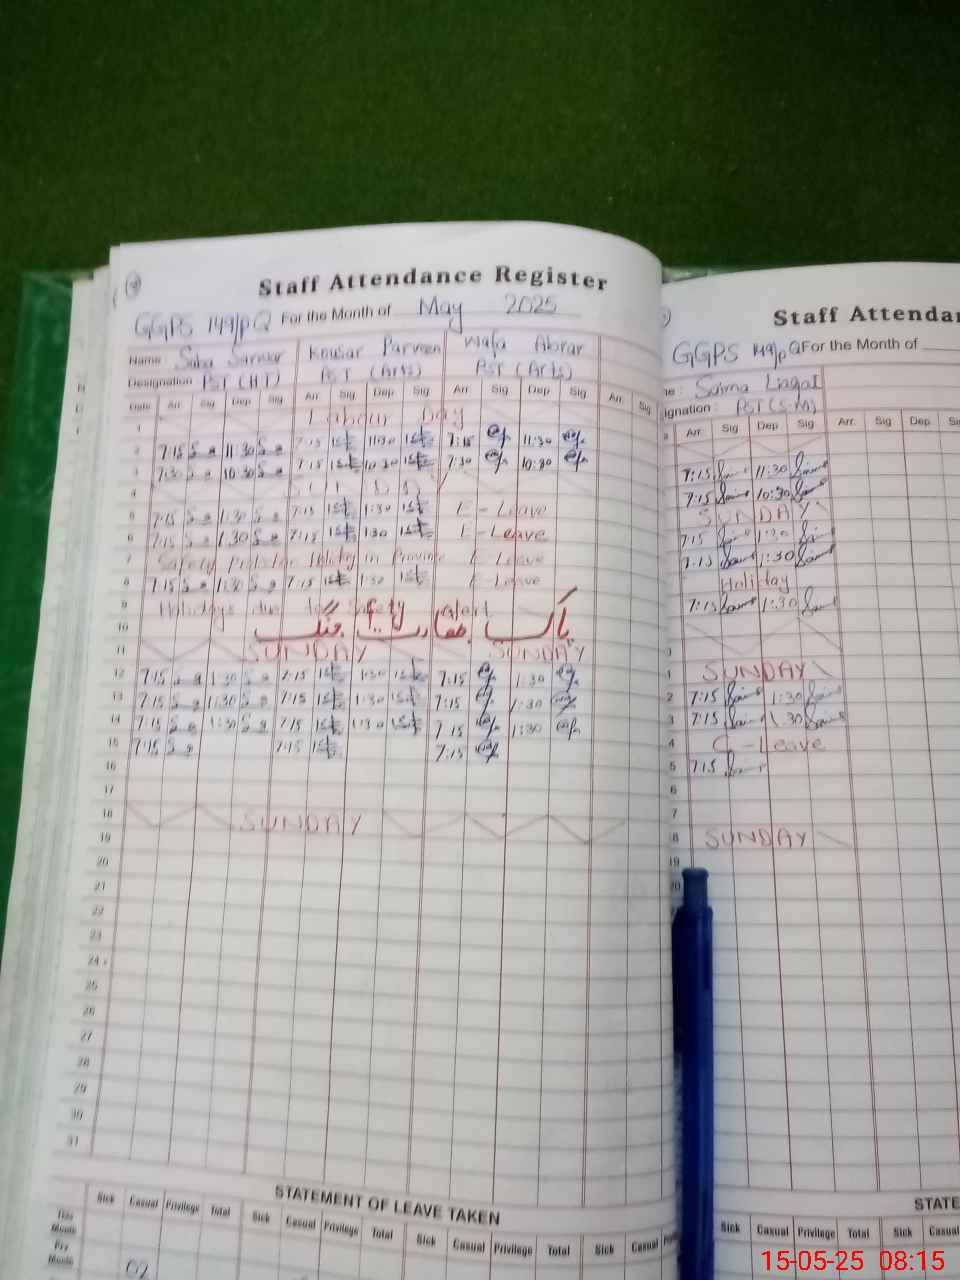 Staff Attendance Register
GGPS 149/p Q For the Month of May 2025
Name Saba Sarwar Kousar Parveen Wafa Abrar
Designation PST (HT) PST (Arts) PST (Arts)
Date Arr Sig Dep Sig Arr Sig Dep Sig Arr Sig Dep Sig Arr Sig
1 Labour Day
2 7:15 11:30 7:15 11:30 7:15 11:30
3 7:30 10:30 7:15 10:30 7:30 10:30
4
5 7:15 1:30 7:15 1:30 E-Leave
6 7:15 1:30 7:15 1:30 E-Leave
7 Safety Holiday in Province E-Leave
8 7:15 1:30 7:15 1:30 E-Leave
9 Holidays due to Safety Alert
10 پاک بھارت جنگ
11 SUNDAY SUNDAY
12 7:15 1:30 7:15 1:30 7:15 1:30
13 7:15 1:30 7:15 1:30 7:15 1:30
14 7:15 1:30 7:15 1:30 7:15 1:30
15 7:15 7:15 7:15
16
17
18 SUNDAY
19
20
21
22
23
24
25
26
27
28
29
30
31
STATEMENT OF LEAVE TAKEN
Sick Casual Privilege Total Sick Casual Privilege Total Sick Casual Privilege Total Sick Casual
This Month
Pre Month 02
Staff Attendan
GGPS 149/p Q For the Month of
me: Saima Liaqat
signation: PST (S-M)
Arr. Sig Dep. Sig Arr. Sig Dep
7:15 11:30
7:15 10:30
SUNDAY
7:15 1:30
7:15 1:30
Holiday
7:15 1:30
1 SUNDAY
2 7:15 1:30
3 7:15 1:30
4 C-Leave
5 7:15
6
7
8 SUNDAY
19
20
STATE
Sick Casual Privilege Total Sick Casual
15-05-25 08:15